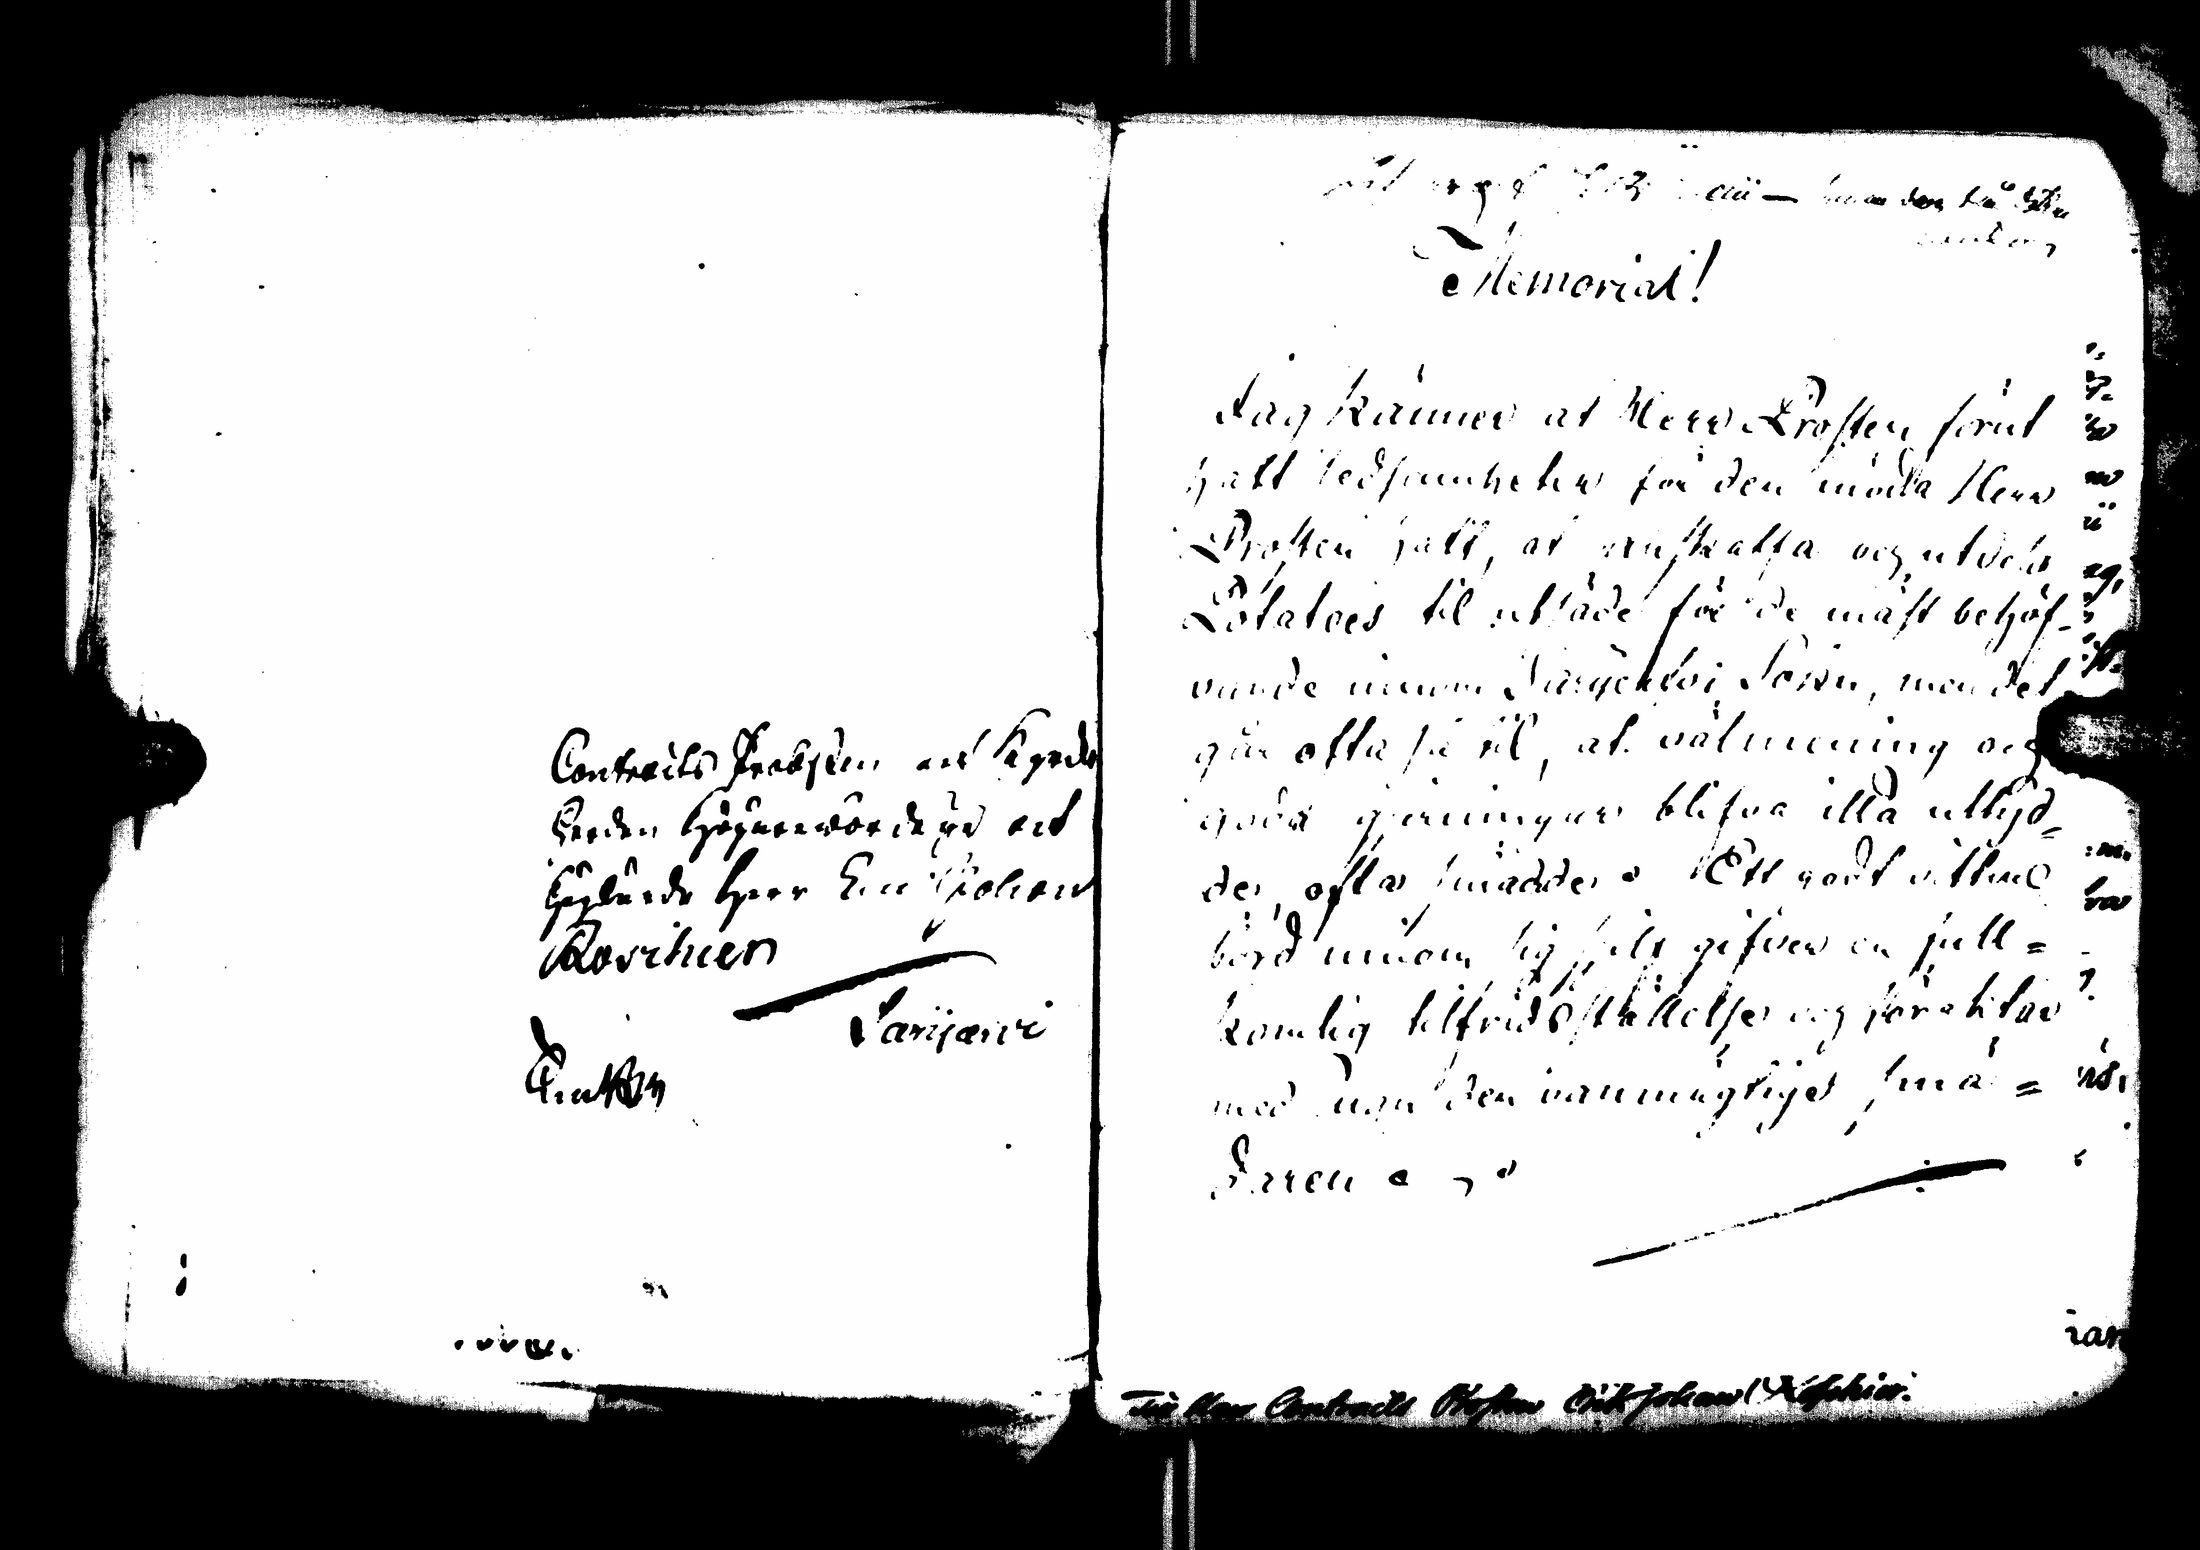 Contracts Probsten och Kyrko
Herden Högvrewördige och
Höglärde Herr Eric Johan
Roschier
Sarijærvi
Memorial!
Jag känner at Herr Prosten förut
haft ledsamheter för den möda Herr
Prosten haft, at anskaffa och utdela
Potatoes til utsäde för de mäst behöf-
vande innom Sarijerfvi Sokn, men det
går ofta så til, at välmening och
goda gjerningar blifva illa uttyd=
der, ofta smädde. Ett godt vittne
börd innom sig sjelf gifver en full=
komlig tilfridsställelse och föraktar
med den vanmägtiges smä=
daren
Til Herr Contracts Prosten Erik Johan Roschier.